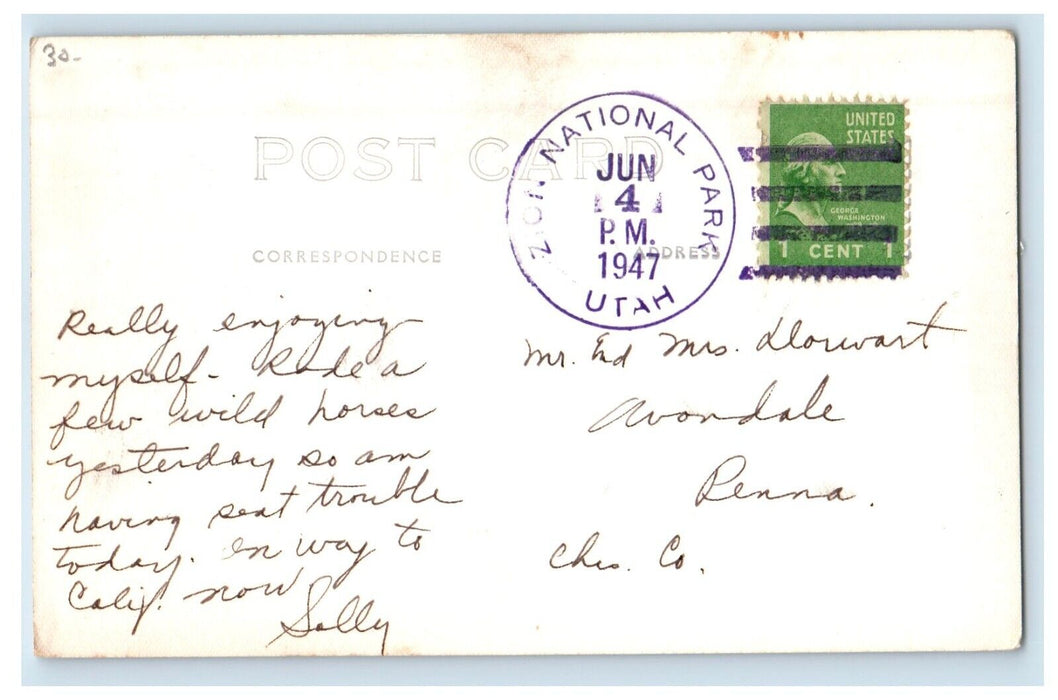 30-
POST CARD
CORRESPONDENCE
ADDRESS
ZION NATIONAL PARK
JUN
4
P.M.
1947
UTAH
UNITED
STATES
GEORGE
WASHINGTON
1 CENT 1
Really enjoying
myself- Rode a
few wild horses
yesterday so am
having seat trouble
today. On way to
Calif. now
Sally
Mr. End Mrs. Dlorwart
Avondale
Penna.
Ches. Co.